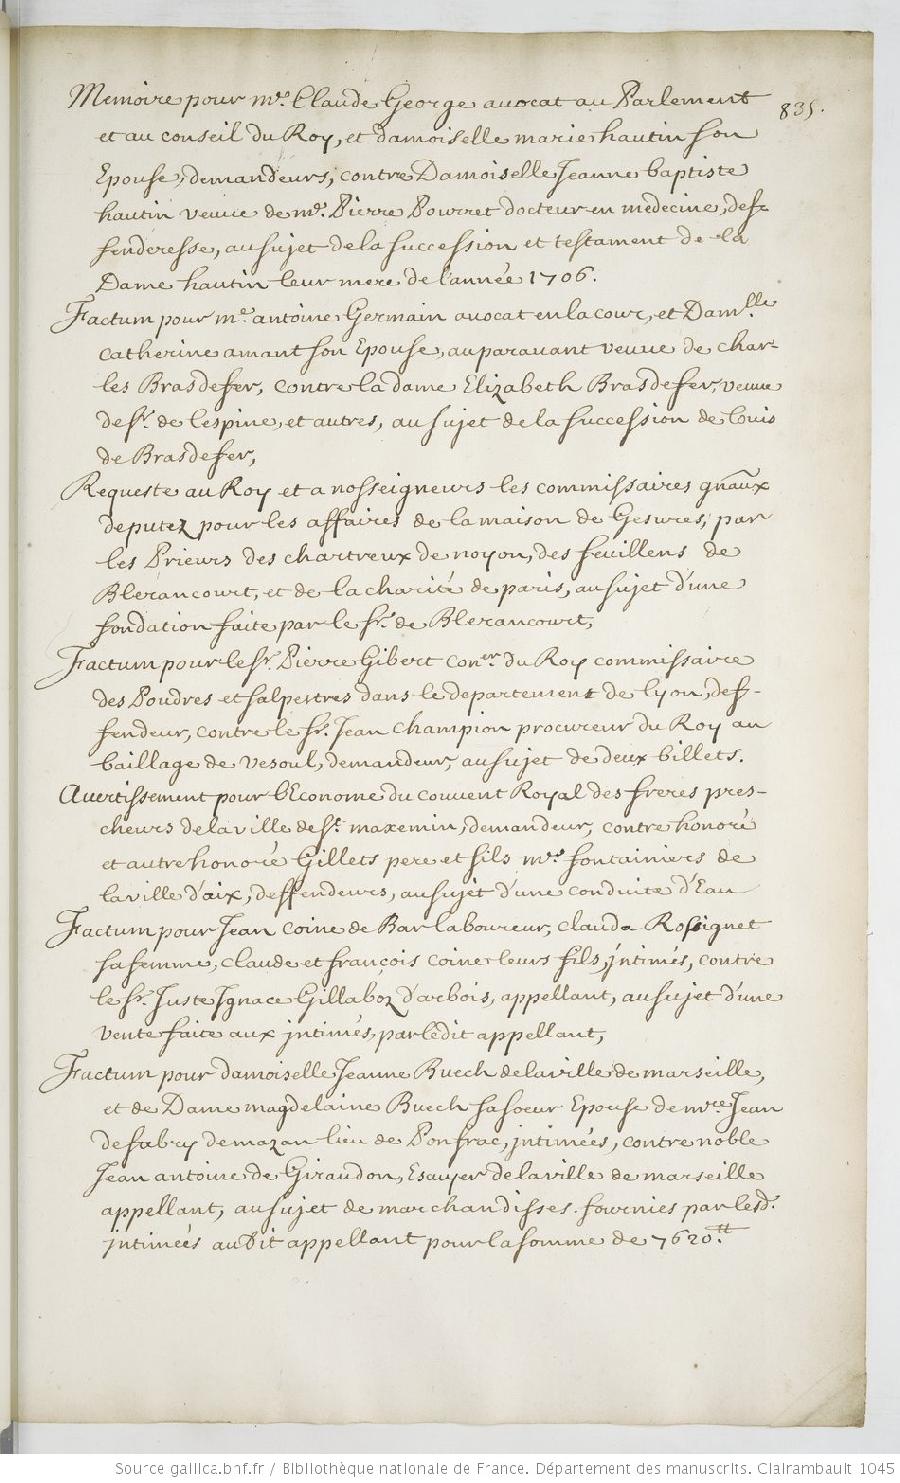 835.
Memoire pour me. Claude George avocat au Parlement
et au conseil du Roy, et damoiselle marie hautin son
Epouse, demandeurs, contre Damoiselle Jeanne baptiste
hautin veuue de me. Pierre Pourret docteur en medecine, def-
fenderesse, au sujet de la succession et testament de la
Dame hautin leur mere de l'année 1706.
Factum pour me. antoine Germain avocat en la cour, et Damlle.
Catherine amant son Epouse, auparavant veuue de Char-
les Brasdefer, contre la dame Elizabeth Brasdefer, veuue
de sr. de lespine, et autres, au sujet de la succession de Louis
de Brasdefer,
Requeste au Roy et a nosseigneurs les commissaires gnãux
deputez pour les affaires de la maison de Gesvres, par
les Prieurs des chartreux de noyon, des feuillens de
Blerancourt, et de la charité de paris, au sujet d'une
fondation faite par le sr. de Blerancourt,
Factum pour le sr. Pierre Gibert coner. du Roy commissaire
des Poudres et salpestres dans le departement de lyon, def-
fendeur, contre le sr. Jean Champion procureur du Roy au
baillage de vesoul, demandeur, au sujet de deux billets.
Avertissement pour l'Econome du couvent Royal des freres pres-
cheurs de la ville de st. maxemin, demandeur, contre honoré
et autre honoré Gillets pere et fils mes. fontainiers de
la ville d'aix, deffendeurs, au sujet d'une conduite d'Eau
Factum pour Jean coine de Bar laboureur, clauda Rossignet
sa femme, claude et françois coine leurs fils, jntimés, contre
le sr. Juste Ignace Gillaboz d'arbois, appellant, au sujet d'une
vente faite aux jntimés, par ledit appellant,
Factum pour damoiselle Jeanne Buech de la ville de marseille,
et de Dame magdelaine Buech sa soeur Epouse de mre. Jean
de fabry de mazan lieu de Ponfrac, jntimées, contre noble
Jean antoine de Giraudon, Escuyer de la ville de marseille
appellant, au sujet de marchandisses fournies par lesd.
jntimées audit appellant pour la somme de 7620.tt
Source gallica.bnf.fr / Bibliothèque nationale de France. Département des manuscrits. Clairambault 1045